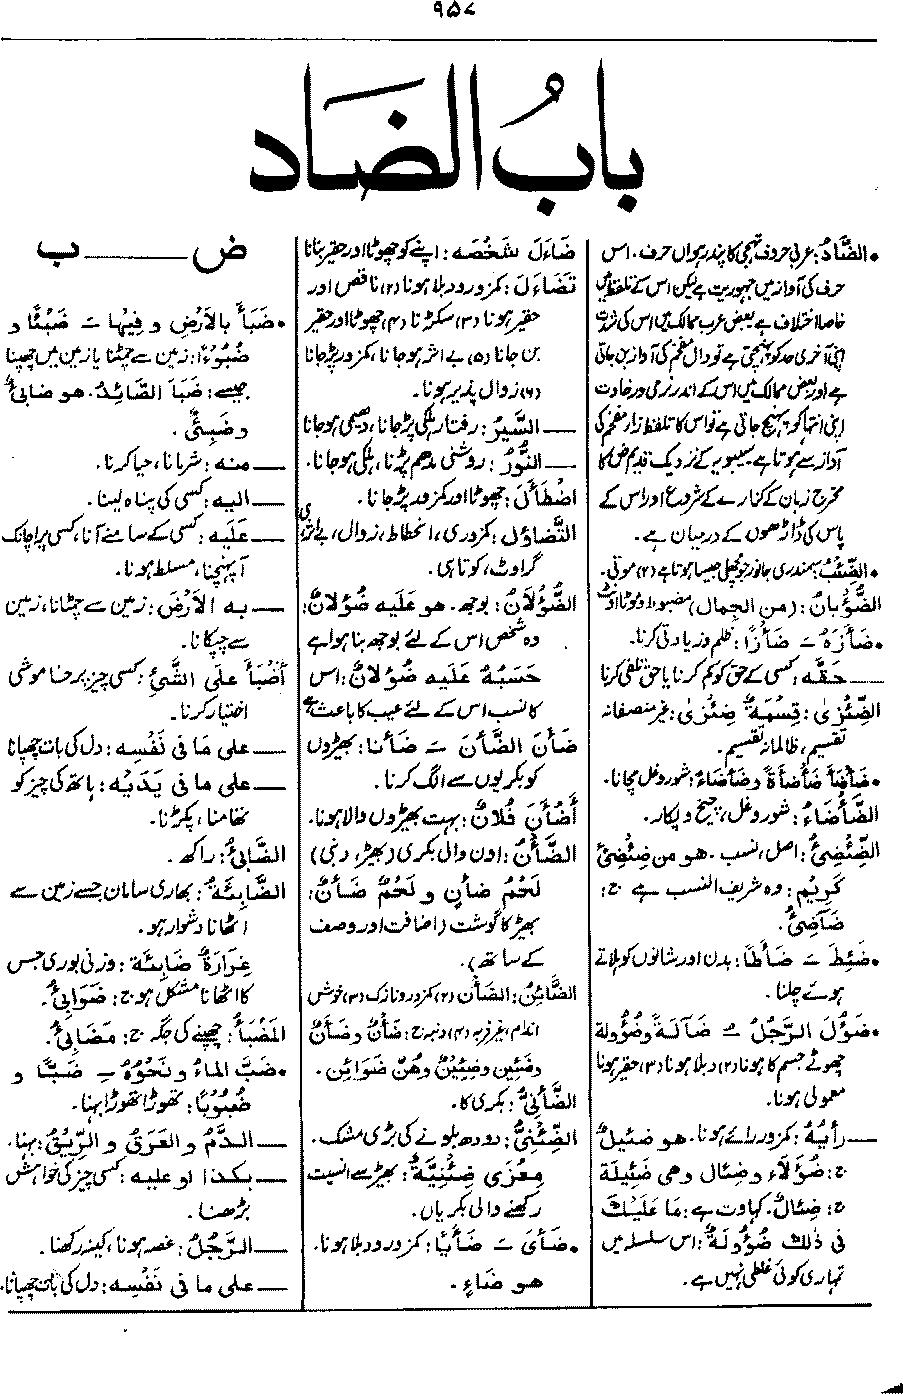 ۹۵۷
بابُ الضَاد
• الضَّادُ: عربی حروف تہجی کا پندرہواں حرف. اس
حرف کی آواز میں جہوریت ہے لیکن اس کے تلفظ میں
خاصا اختلاف ہے بعض عرب ممالک میں اس کی شدت
اپنی آخری حد کو پہنچتی ہے تو دال مفخم کی آواز بن جاتی
ہے اور بعض ممالک میں اس کے اندر نرمی ورخاوت
اپنی انتہا کو پہنچ جاتی ہے تو اس کا تلفظ زار مفخم کی
آواز سے ہوتا ہے سیبویہ کے نزدیک قدیم ض کا
مخرج زبان کے کنارے کے شروع اور اس کے
پاس کی داڑھوں کے درمیان ہے.
• الضِّئْبُ: سمندری جانور جو مچھلی جیسا ہوتا ہے (۲) موتی.
الضُّؤْبانُ: (من الجِمال) مضبوط و موٹا اونٹ
• ضَأزَهُ ــَـ ضَأزًا: ظلم و زیادتی کرنا.
ـــ حقَّه: کسی کے حق کو کم کرنا یا حق تلفی کرنا
الضِّئْزىٰ: قِسْمَةٌ ضِئْزىٰ: غیر منصفانہ
تقسیم، ظالمانہ تقسیم.
• ضَأضَأ ضَأضَأةً وضَأضَاءً: شور و غل مچانا.
الضَّأضَاءُ: شور و غل، چیخ و پکار.
الضِّئْضِئُ: اصل، نسب. هو من ضِئْضِئٍ
كَرِيْم: وہ شریف النسب ہے ج:
ضَآضِئُ.
• ضَئِطَ ــَـ ضَأطًا: بدن اور شانوں کو ہلاتے
ہوئے چلنا.
• ضَؤُلَ الرَّجُلُ ــُـ ضَآلَةً وضُؤُولَة
چھوٹے جسم کا ہونا (۲) دبلا ہونا (۳) حقیر ہونا
معمولی ہونا.
ـــ رأيُهٗ: کمزور رائے ہونا. هو ضَئِيلٌ
ج: ضُؤَلَاء وضِئال وهی ضَئِيلَة
ج: ضِئَالٌ. کہاوت ہے: مَا عَلَيْكَ
فی ذٰلك ضُؤُولَةٌ: اس سلسلہ میں
تمہاری کوئی غلطی نہیں ہے.
ضَاءَلَ شَخْصَه: اپنے کو چھوٹا اور حقیر بنانا
تَضَاءَلَ: کمزور و دبلا ہونا (۲) ناقص اور
حقیر ہونا (۳) سکڑنا (۴) چھوٹا اور حقیر
بن جانا (۵) بے اثر ہو جانا، کمزور پڑ جانا
(۶) زوال پذیر ہونا.
ـــ السَّيرُ: رفتار ہلکی پڑ جانا، دھیمی ہو جانا
ـــ النُّوْرُ: روشنی مدھم پڑنا، ہلکی ہو جانا.
اضْطَأَلَ: چھوٹا اور کمزور پڑ جانا.
التَّضَاؤل: کمزوری، انحطاط، زوال، بے اثری
گراوٹ، کوتاہی.
الضُّؤْلَانُ: بوجھ. هو عَلَيْه ضُؤْلَانٌ:
وہ شخص اس کے لئے بوجھ بنا ہوا ہے
حَسَبُهٗ عَلَيْه ضُؤْلَانٌ: اس
کا نسب اس کے لئے عیب کا باعث ہے
ضَأنَ الضَّأنَ ــَـ ضَأنًا: بھیڑوں
کو بکریوں سے الگ کرنا.
أضْأنَ فُلَانٌ: بہت بھیڑوں والا ہونا.
الضَّأنُ: اون والی بکری (بھیڑ، دنبی)
لَحْمُ ضَأنٍ و لَحْمٌ ضَأنٌ:
بھیڑ کا گوشت (اضافت اور وصف
کے ساتھ).
الضَّائِنُ: الضَأن (۲) کمزور و نازک (۳) خوش
اندام، غیر فربہ (۴) دنبہ ج: ضَأنٌ وضَأنٌ
وضَئِين وضِئِيْنٌ وهُنّ ضَوَائِن.
الضَّأنِيُّ: بکری کا.
الضِّئْنِيُّ: دودھ بلونے کی بڑی مشک.
مِعْزَى ضِئْنِيَّةٌ: بھیڑ سے انسیت
رکھنے والی بکریاں.
• ضَأَىٰ ــَـ ضَأْيًا: کمزور و دبلا ہونا.
هو ضَاءٍ.
ض ــــ ب
• ضَبَأَ بالأرْضِ و فِيْها ــَـ ضَبْئًا و
ضُبُوْءًا: زمین سے چمٹنا یا زمین میں چھپنا
جیسے: ضَبَأ الصَّائِدُ. هو ضَابِئٌ
وضَبِئٌ.
ـــ منه: شرمانا، حیا کرنا.
ـــ اليه: کسی کی پناہ لینا.
ـــ عَلَيْه: کسی کے سامنے آنا، کسی پر اچانک
آ پہنچنا، مسلط ہونا.
ـــ به الأرْضَ: زمین سے چمٹانا، زمین
سے چپکانا.
أضْبَأ علَی الشَّئ: کسی چیز پر خاموشی
اختیار کرنا.
ـــ علی مَا فی نَفْسِه: دل کی بات چھپانا
ـــ علی ما فی يَدَيْه: ہاتھ کی چیز کو
تھامنا، پکڑنا.
الضَّابِئُ: راکھ.
الضَّابِئَةُ: بھاری سامان جسے زمین سے
اٹھانا دشوار ہو.
غِرَارَةٌ ضَابِئَة: وزنی بوری جس
کا اٹھانا مشکل ہو ج: ضَوَابِئُ.
المَضْبَأُ: چھپنے کی جگہ ج: مَضَابِئُ.
• ضَبَّ الماءُ ونَحْوُهٗ ــِـ ضَبًّا و
ضُبُوْبًا: تھوڑا تھوڑا بہنا.
ـــ الدَّمُ و العَرَقُ و الرِّيْقُ: بہنا.
ـــ بكذا او عليه: کسی چیز کی خواہش
بڑھنا.
ـــ الرَّجُلُ: غصہ ہونا، کینہ رکھنا.
ـــ علی ما فی نَفْسِه: دل کی بات چھپانا.